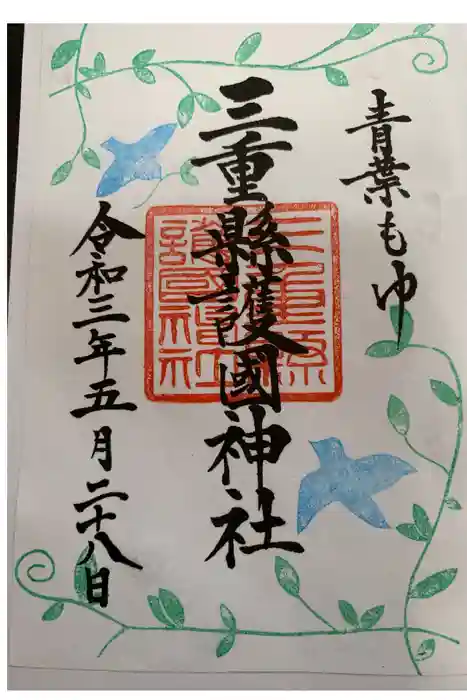 青葉もゆ
三重縣護國神社
令和三年五月二十八日
三重縣護國神社